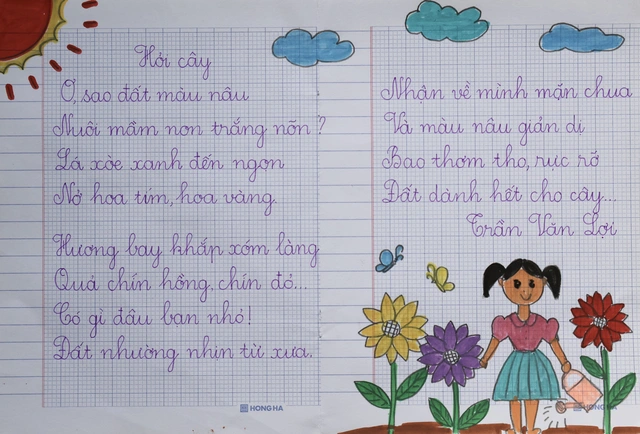 Hỏi cây
Ơ, sao đất màu nâu
Nuôi mầm non trắng nõn?
Lá xòe xanh đến ngọn
Nở hoa tím, hoa vàng
Hương bay khắp xóm làng
Quả chín hồng, chín đỏ...
Có gì đâu bạn nhỏ!
Đất nhường nhịn từ xưa.
HONG HA
Nhận về mình mặn chua
Và màu nâu giản dị
Bao thơm tho, rực rỡ
Đất dành hết cho cây...
Trần Văn Lợi
HONG HA